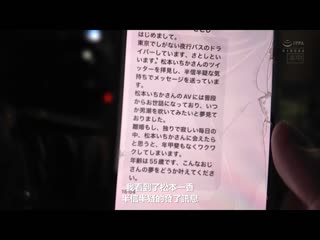 はじめまして。
東京でしがない夜行バスのドラ
イバーしています、さとしとい
います。松本いちかさんのツイ
ッターを拝見し、半信半疑な気
持ちでメッセージを送っていま
す。
松本いちかさんのAVには普段
からお世話になっており、いつ
か男潮を吹いてみたいと夢見て
おりました。
離婚もし、独りで寂しい毎日の
中、松本いちかさんに会えたら
と思うと、年甲斐もなくワクワ
クしてしまいます。
年齢は55歳です、こんなおじ
さんの夢をどうか叶えてくださ
い。
我看到了松本一香
半信半疑的發了訊息